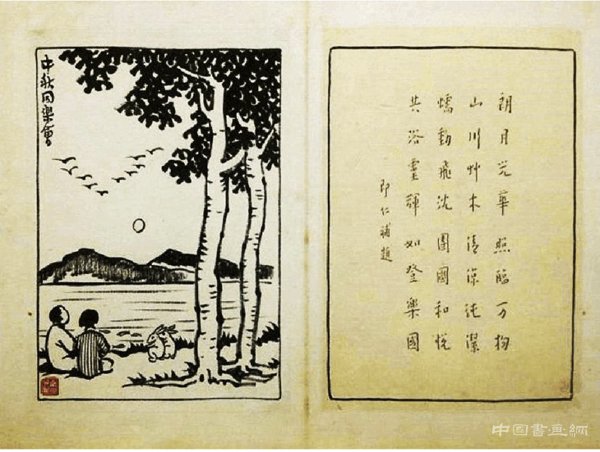 中秋同樂會
朗月光華 照臨万物
山川艸木 清涼純潔
蠕動飛沈 團圞和悅
共浴靈輝 如登樂國
即仁補題
中国書画網